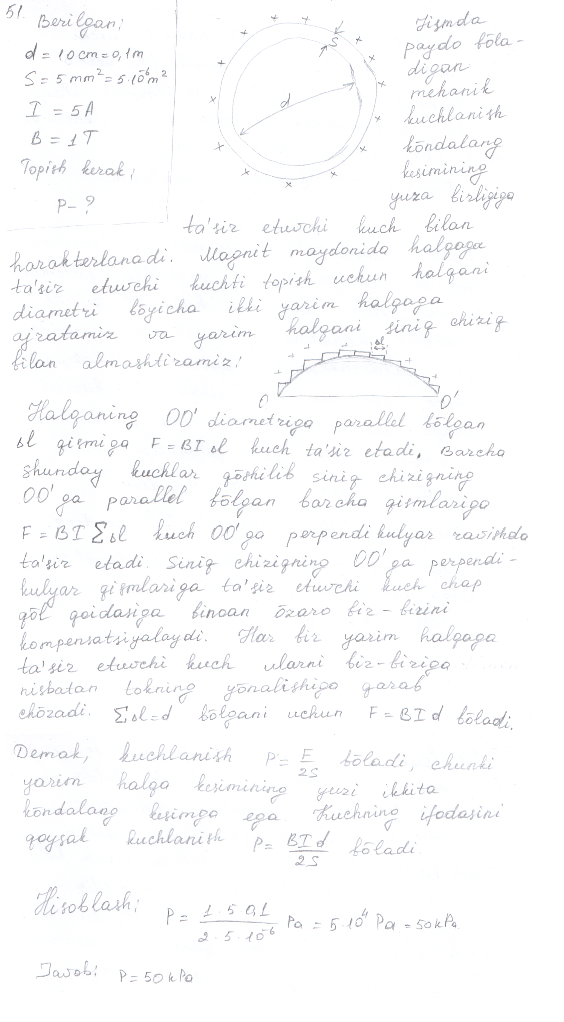 51.
Berilgan:
d = 10 cm = 0,1 m
S = 5 mm² = 5·10⁻⁶ m²
I = 5A
B = 1T
Topish kerak:
P - ?
S
d
Jismda
paydo bōla-
digan
mehanik
kuchlanish
kōndalang
kesimining
yuza birligiga
ta'sir etuvchi kuch bilan
harakterlanadi. Magnit maydonida halqaga
ta'sir etuvchi kuchti topish uchun halqani
diametri bōyicha ikki yarim halqaga
ajratamiz va yarim halqani siniq chiziq
bilan almashtiramiz:
Δl
O O'
Halqaning OO' diametriga parallel bōlgan
Δl qismiga F = BIΔl kuch ta'sir etadi. Barcha
shunday kuchlar qōshilib siniq chiziqning
OO' ga parallel bōlgan barcha qismlariga
F = BI ΣΔl kuch OO' ga perpendikulyar ravishda
ta'sir etadi. Siniq chiziqning OO' ga perpendi-
kulyar qismlariga ta'sir etuvchi kuch chap
qōl qoidasiga binoan ōzaro bir-birini
kompensatsiyalaydi. Har bir yarim halqaga
ta'sir etuvchi kuch ularni bir-biriga
nisbatan tokning yōnalishiga qarab
chōzadi. ΣΔl = d bōlgani uchun F = BId bōladi.
Demak, kuchlanish P = F/2S bōladi, chunki
yarim halqa kesimining yuzi ikkita
kōndalang kesimga ega. Kuchning ifodasini
qoysak kuchlanish P = BId/2S bōladi
Hisoblash: P = 1·5·0,1/2·5·10⁻⁶ Pa = 5·10⁴ Pa = 50 kPa
Javob: P = 50 kPa